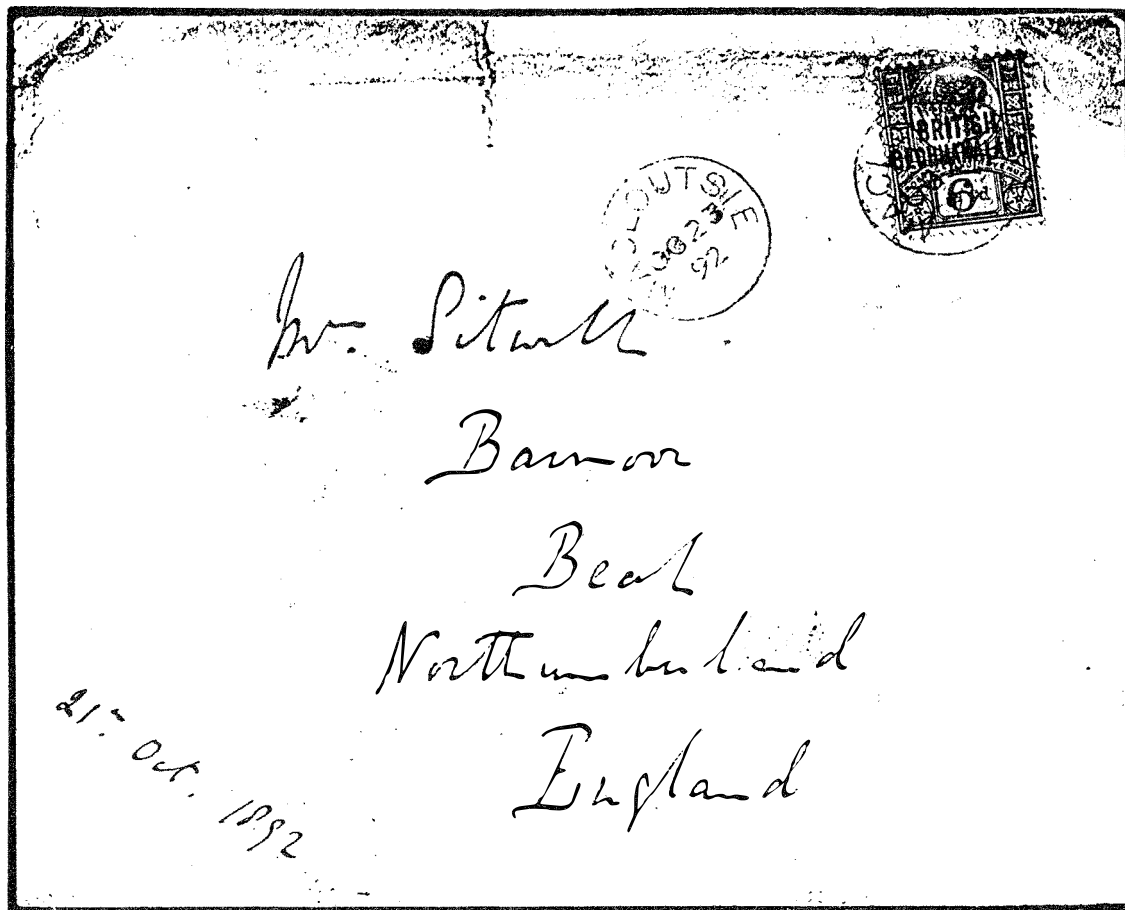 BRITISH
BECHUANALAND
6d
OUTSIE
23
92
Mrs. Sitwell
Barmoor
Beal
Northumberland
England
21st Oct. 1892